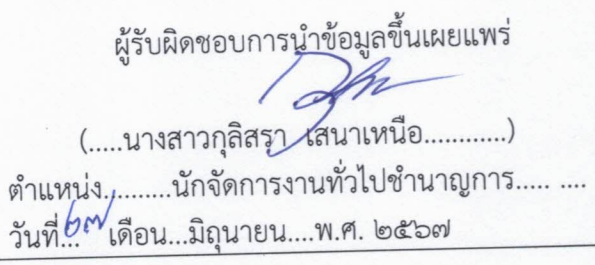 ผู้รับผิดชอบการนำข้อมูลขึ้นเผยแพร่
(.....นางสาวกุลิสรา เสนาเหนือ............)
ตำแหน่ง..........นักจัดการงานทั่วไปชำนาญการ..... ....
วันที่...๒๗ เดือน...มิถุนายน....พ.ศ. ๒๕๖๗